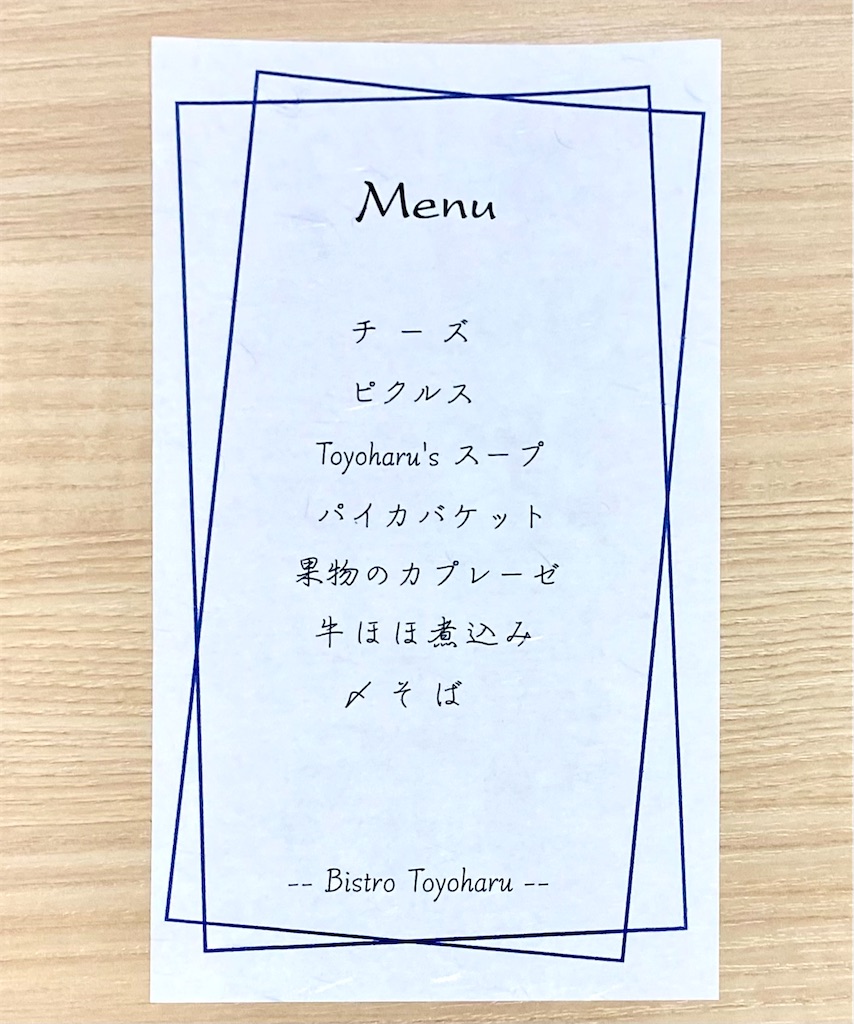 Menu
チーズ
ピクルス
Toyoharu's スープ
パイカバケット
果物のカプレーゼ
牛ほほ煮込み
〆そば
-- Bistro Toyoharu --